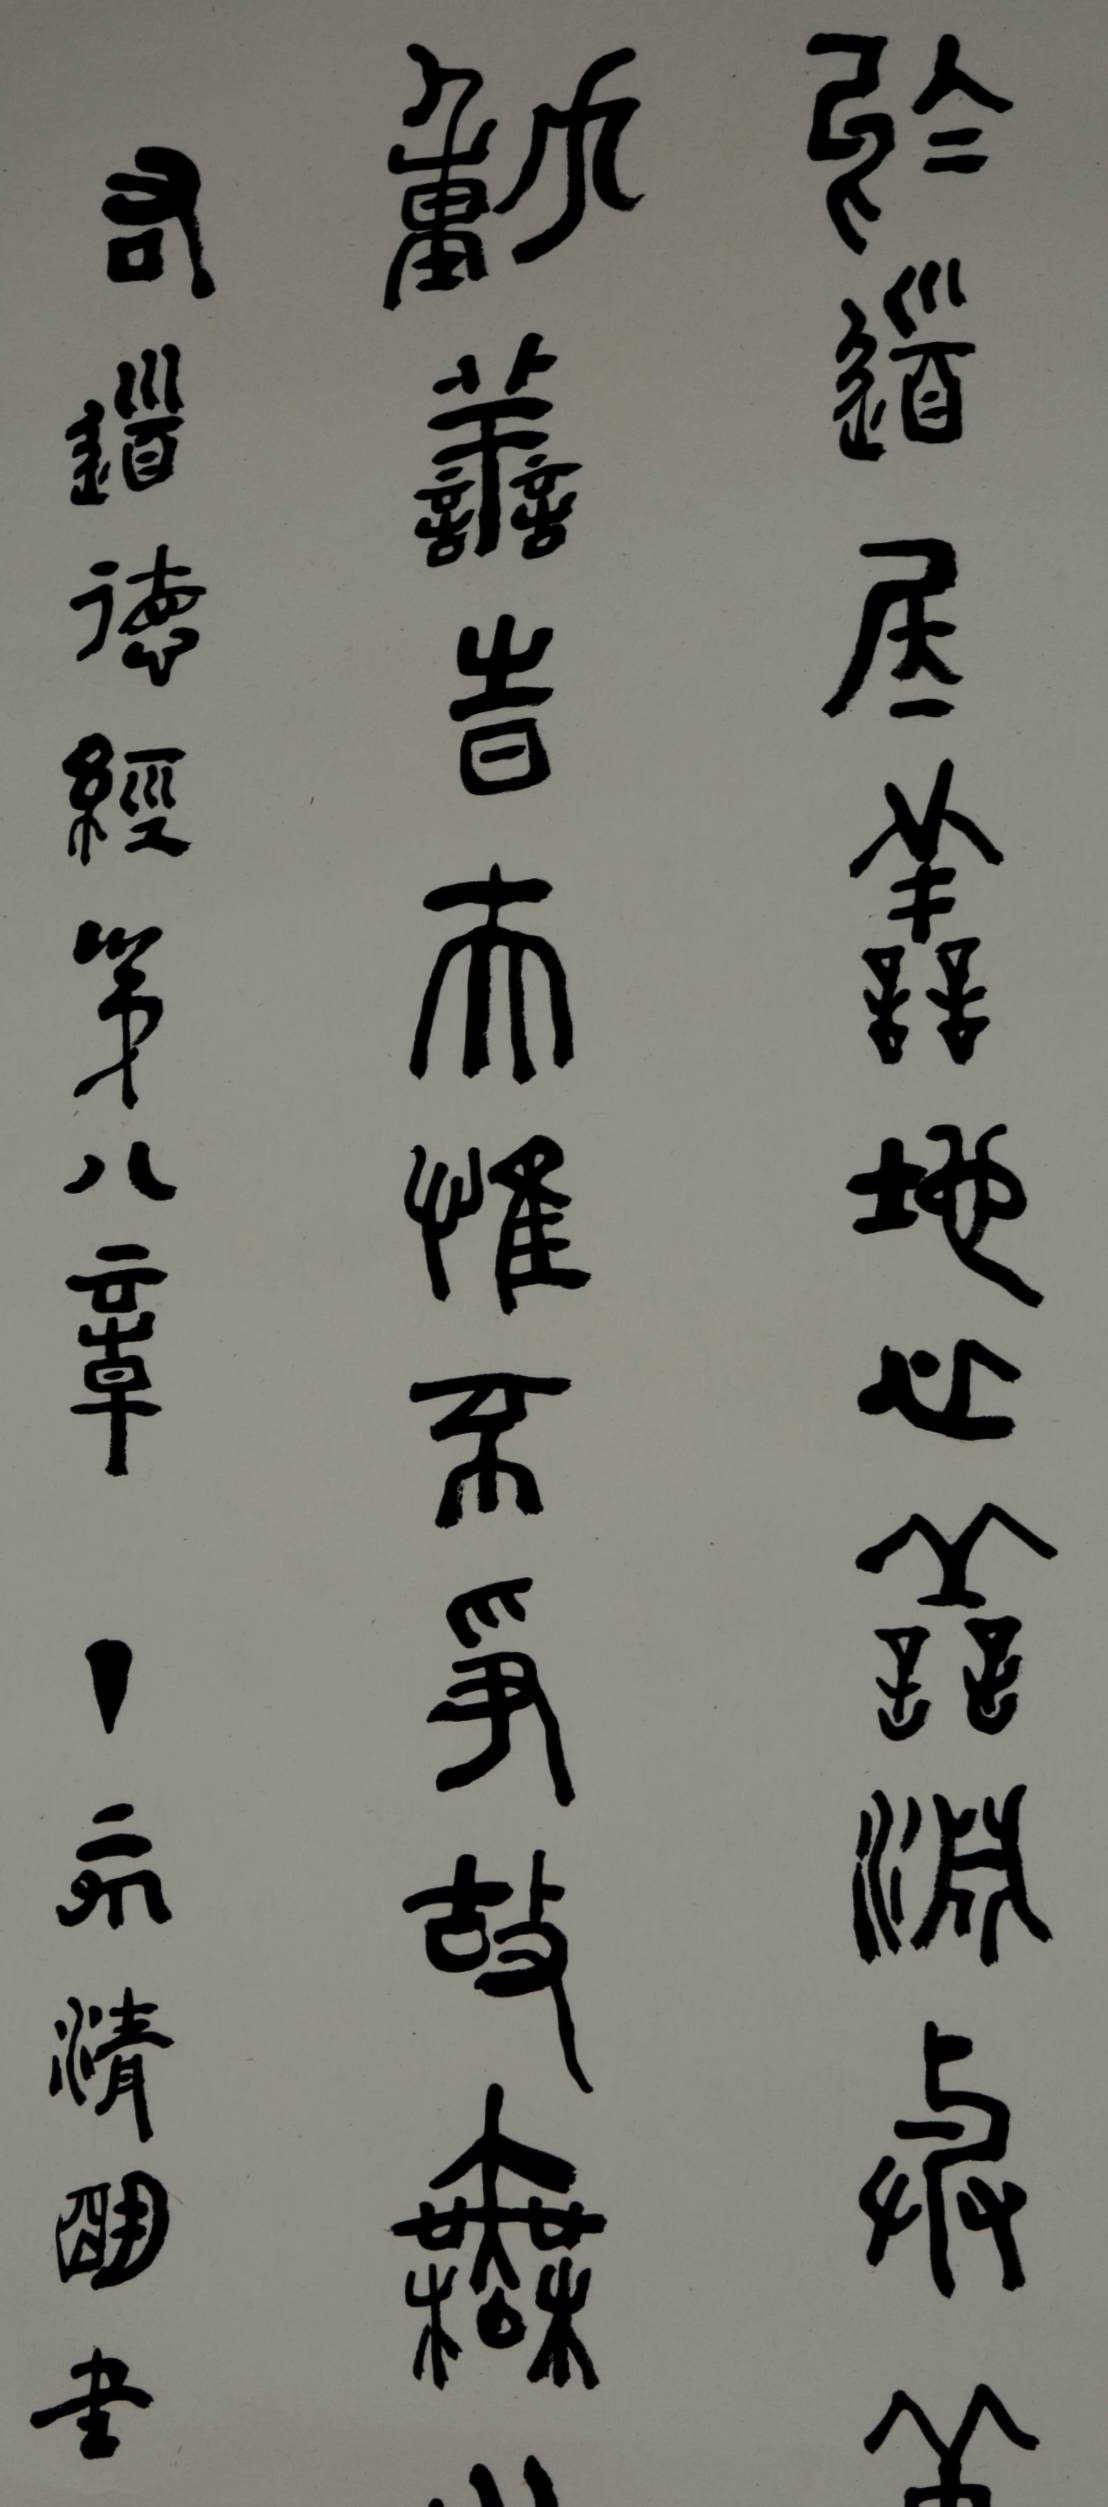 於道居善地心善淵與善
動善時夫惟不爭故無
右道德經第八章 丁亥清明書